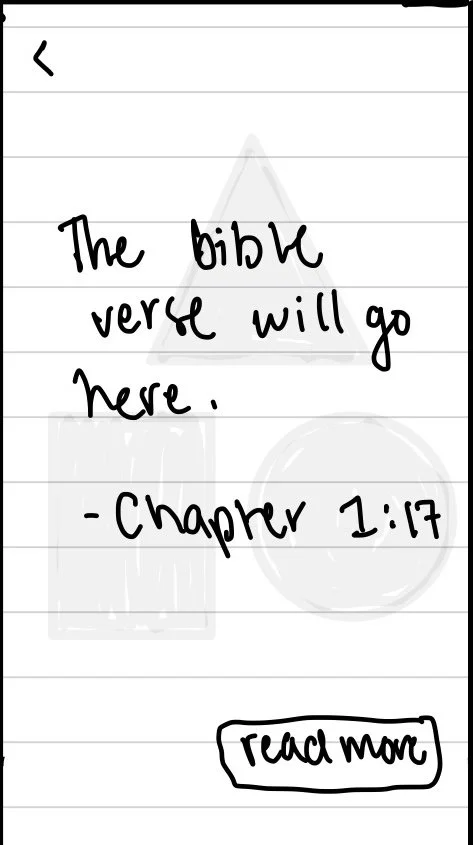 <
The bible
verse will go
here.
- Chapter 1:17
read more